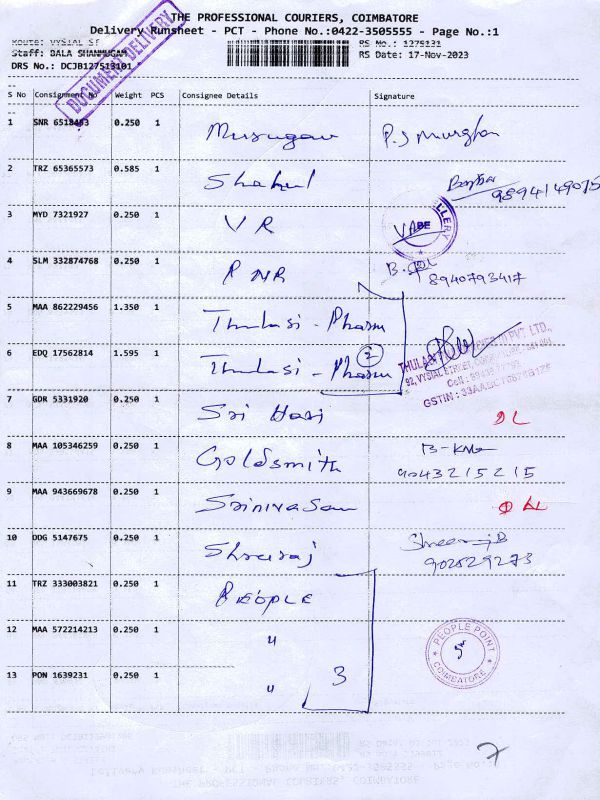 THE PROFESSIONAL COURIERS, COIMBATORE
Delivery Runsheet - PCT - Phone No.:0422-3505555 - Page No.:1
Route: VYSIAL ST
RS No.: 1275131
Staff: BALA SHANMUGAM
RS Date: 17-Nov-2023
DRS No.: DCJB127513101
DOCUMENT DELIVERY
S No Consignment No Weight PCS Consignee Details Signature
1 SNR 6518483 0.250 1 Murugan P.S Murghan
2 TRZ 65365573 0.585 1 Shahul 9894149075
3 MYD 7321927 0.250 1 V R
4 SLM 332874768 0.250 1 P N R 8940793417
5 MAA 862229456 1.350 1 Thulasi - Pharm
6 EDQ 17562814 1.595 1 Thulasi - Pharm 2
7 GDR 5331920 0.250 1 Sri Hari DL
8 MAA 105346259 0.250 1 Goldsmith 9043215215
9 MAA 943669678 0.250 1 Srinivasan
10 DDG 5147675 0.250 1 Shreeraj
11 TRZ 333003821 0.250 1 PEOPLE
12 MAA 572214213 0.250 1 "
PEOPLE POINT
COIMBATORE
13 PON 1639231 0.250 1 " 3
7